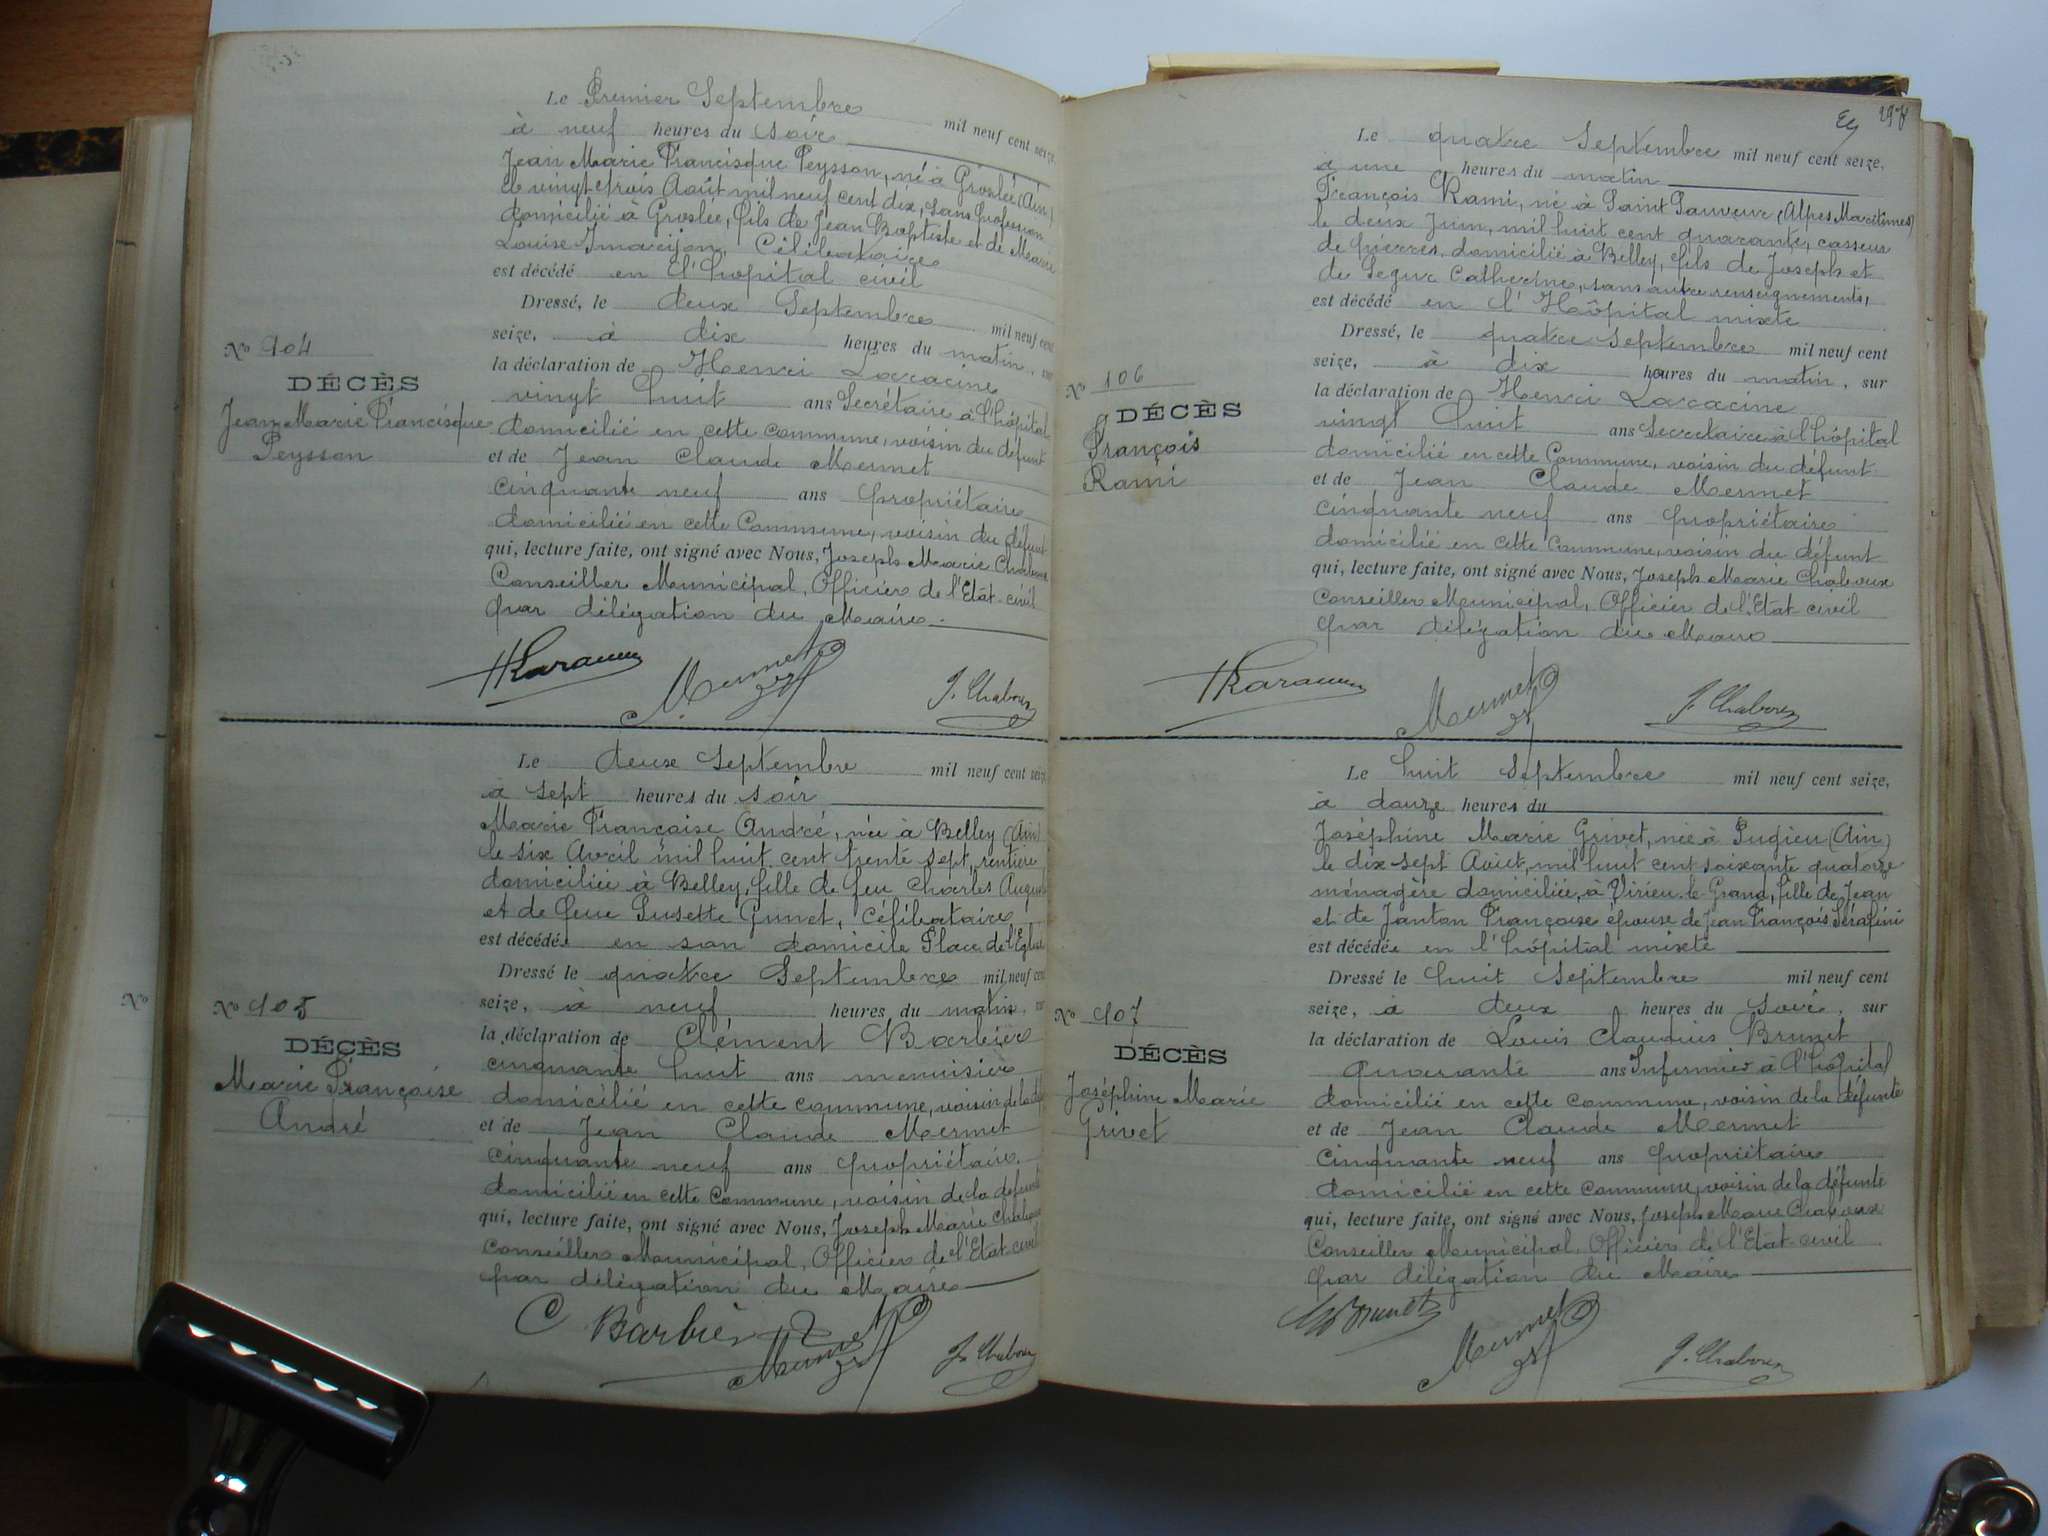 Le Premier Septembre mil neuf cent seize,
à neuf heures du soir
Jean Marie Francisque Peysson, né à Groslée (Ain)
le vingt trois Août mil neuf cent dix, sans profession
domicilié à Groslée, fils de Jean Baptiste et de Marie
Louise Célibataire
est décédé en l'hôpital civil
Dressé, le deux Septembre mil neuf cent
seize, à dix heures du matin, sur
No 104
la déclaration de Henri Laracine
DÉCÈS
vingt huit ans Secrétaire à l'hôpital
Jean Marie Francisque
domicilié en cette commune, voisin du défunt
Peysson
et de Jean Claude Mermet
cinquante neuf ans propriétaire
domicilié en cette Commune, voisin du défunt
qui, lecture faite, ont signé avec Nous, Joseph Marie Chaboux
Conseiller Municipal, Officier de l'Etat civil
par délégation du Maire.
HLaracine Mermet J. Chaboux
Le deux Septembre mil neuf cent seize
à sept heures du soir
Marie Françoise André, née à Belley (Ain)
le six Avril mil huit cent trente sept, rentière
domiciliée à Belley, fille de feu Charles Auguste
et de feue Susette Célibataire
est décédée en son domicile Place de l'Eglise
Dressé le quatre Septembre mil neuf cent
No 105
seize, à neuf heures du matin, sur
DÉCÈS
la déclaration de Clément Barbier
Marie Françoise
cinquante huit ans menuisier
André
domicilié en cette commune, voisin de la
et de Jean Claude Mermet
cinquante neuf ans propriétaire
domicilié en cette Commune, voisin de la défunte
qui, lecture faite, ont signé avec Nous, Joseph Marie Chaboux
Conseiller Municipal, Officier de l'Etat civil
par délégation du Maire
C Barbier Mermet J. Chaboux
297
Le quatre Septembre mil neuf cent seize,
à une heures du matin
François Rami, né à Saint Sauveur (Alpes Maritimes)
le deux Juin, mil huit cent quarante, casseur
de pierres, domicilié à Belley, fils de Joseph et
de Segur Catherine, sans autre renseignements,
est décédé en l'Hôpital mixte
Dressé, le quatre Septembre mil neuf cent
seize, à dix heures du matin, sur
No 106
la déclaration de Henri Laracine
DÉCÈS
vingt huit ans Secrétaire à l'hôpital
François
domicilié en cette Commune, voisin du défunt
Rami
et de Jean Claude Mermet
cinquante neuf ans propriétaire
domicilié en cette Commune, voisin du défunt
qui, lecture faite, ont signé avec Nous, Joseph Marie Chaboux
Conseiller Municipal, Officier de l'Etat civil
par délégation du Maire
HLaracine Mermet J. Chaboux
Le huit Septembre mil neuf cent seize,
à douze heures du
Joséphine Marie Grivet, née à Pugieu (Ain)
le dix sept Août, mil huit cent soixante quatorze
ménagère domiciliée à Virieu-le-Grand, fille de Jean
et de Janton Françoise épouse de Jean François Sérafini
est décédée en l'hôpital mixte
Dressé le huit Septembre mil neuf cent
No 107
seize, à deux heures du soir, sur
DÉCÈS
la déclaration de Louis Claudius Brunet
Joséphine Marie
quarante ans Infirmier à l'hôpital
Grivet
domicilié en cette commune, voisin de la défunte
et de Jean Claude Mermet
cinquante neuf ans propriétaire
domicilié en cette Commune, voisin de la défunte
qui, lecture faite, ont signé avec Nous, Joseph Marie Chaboux
Conseiller Municipal, Officier de l'Etat civil
par délégation du Maire
Brunet Mermet J. Chaboux
No